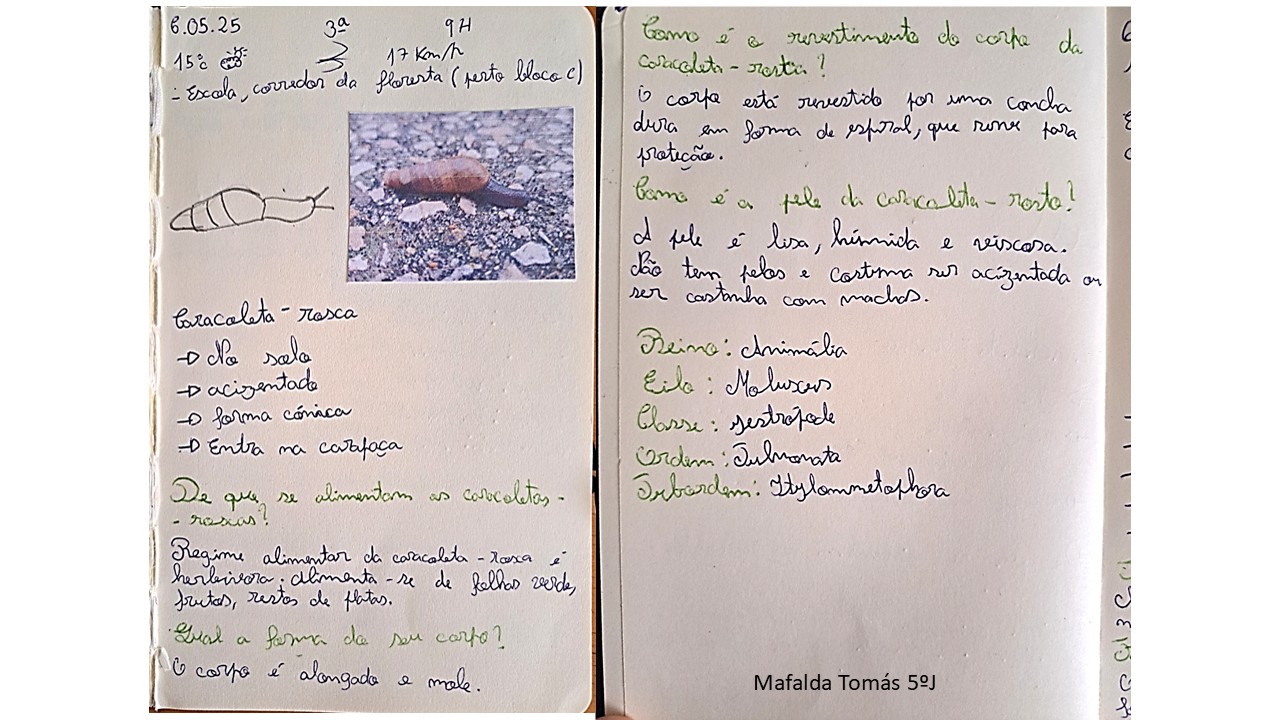 6.05.25 3ª 9H
15°C 17 Km/h
- Escola, corredor da floresta (perto bloco C)
Caracoleta-rosca
→ No solo
→ acizentado
→ forma cónica
→ Entra na carapaça
De que se alimentam as caracoletas-
-roscas?
Regime alimentar da caracoleta-rosca é
herbívora: Alimenta-se de folhas verde,
frutos, restos de platas.
Qual a forma do seu corpo?
O corpo é alongado e mole.
Como é o revestimento do corpo da
caracoleta-rosca?
O corpo está revestido por uma concha
dura em forma de espiral, que serve para
proteção.
Como é a pele da caracoleta-rosca?
A pele é lisa, húmida e viscosa.
Não tem pelos e costuma ser acizentada ou
ser castanha com machas.
Reino: Animália
Filo: Moluscos
Classe: gestrópode
Ordem: Pulmonata
Subordem: Stylommatophora
Mafalda Tomás 5ºJ